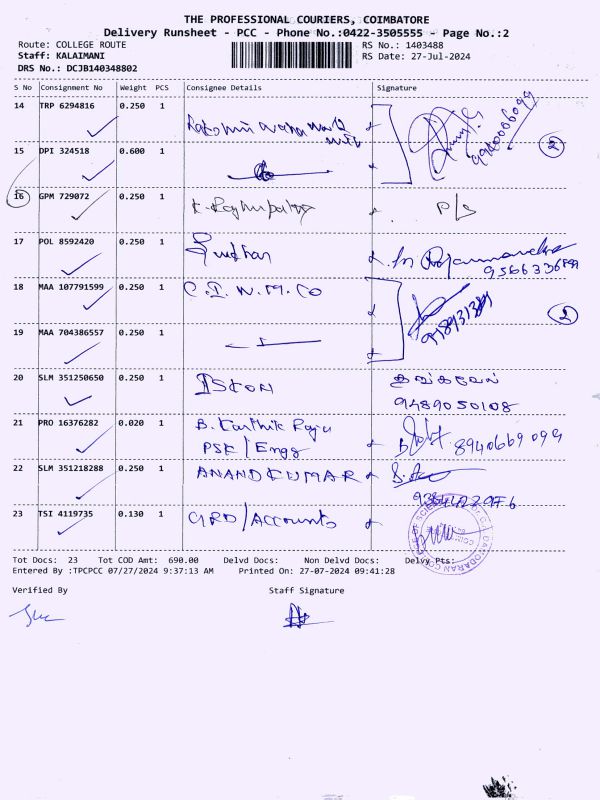 THE PROFESSIONAL COURIERS, COIMBATORE
Delivery Runsheet - PCC - Phone No.:0422-3505555 - Page No.:2
Route: COLLEGE ROUTE RS No.: 1403488
Staff: KALAIMANI RS Date: 27-Jul-2024
DRS No.: DCJB140348802
S No Consignment No Weight PCS Consignee Details Signature
14 TRP 6294816 0.250 1
15 DPI 324518 0.600 1
2
16 GPM 729072 0.250 1 P/S
17 POL 8592420 0.250 1
18 MAA 107791599 0.250 1 C.I.W.M.Co
19 MAA 704386557 0.250 1
2
20 SLM 351250650 0.250 1
9489050108
21 PRO 16376282 0.020 1 B. Karthik Raju
PSK/Engg 8940669099
22 SLM 351218288 0.250 1 ANANDKUMAR
23 TSI 4119735 0.130 1 GRD/Accounts
Tot Docs: 23 Tot COD Amt: 690.00 Delvd Docs: Non Delvd Docs: Delvy Pts:
Entered By :TPCPCC 07/27/2024 9:37:13 AM Printed On: 27-07-2024 09:41:28
Verified By Staff Signature